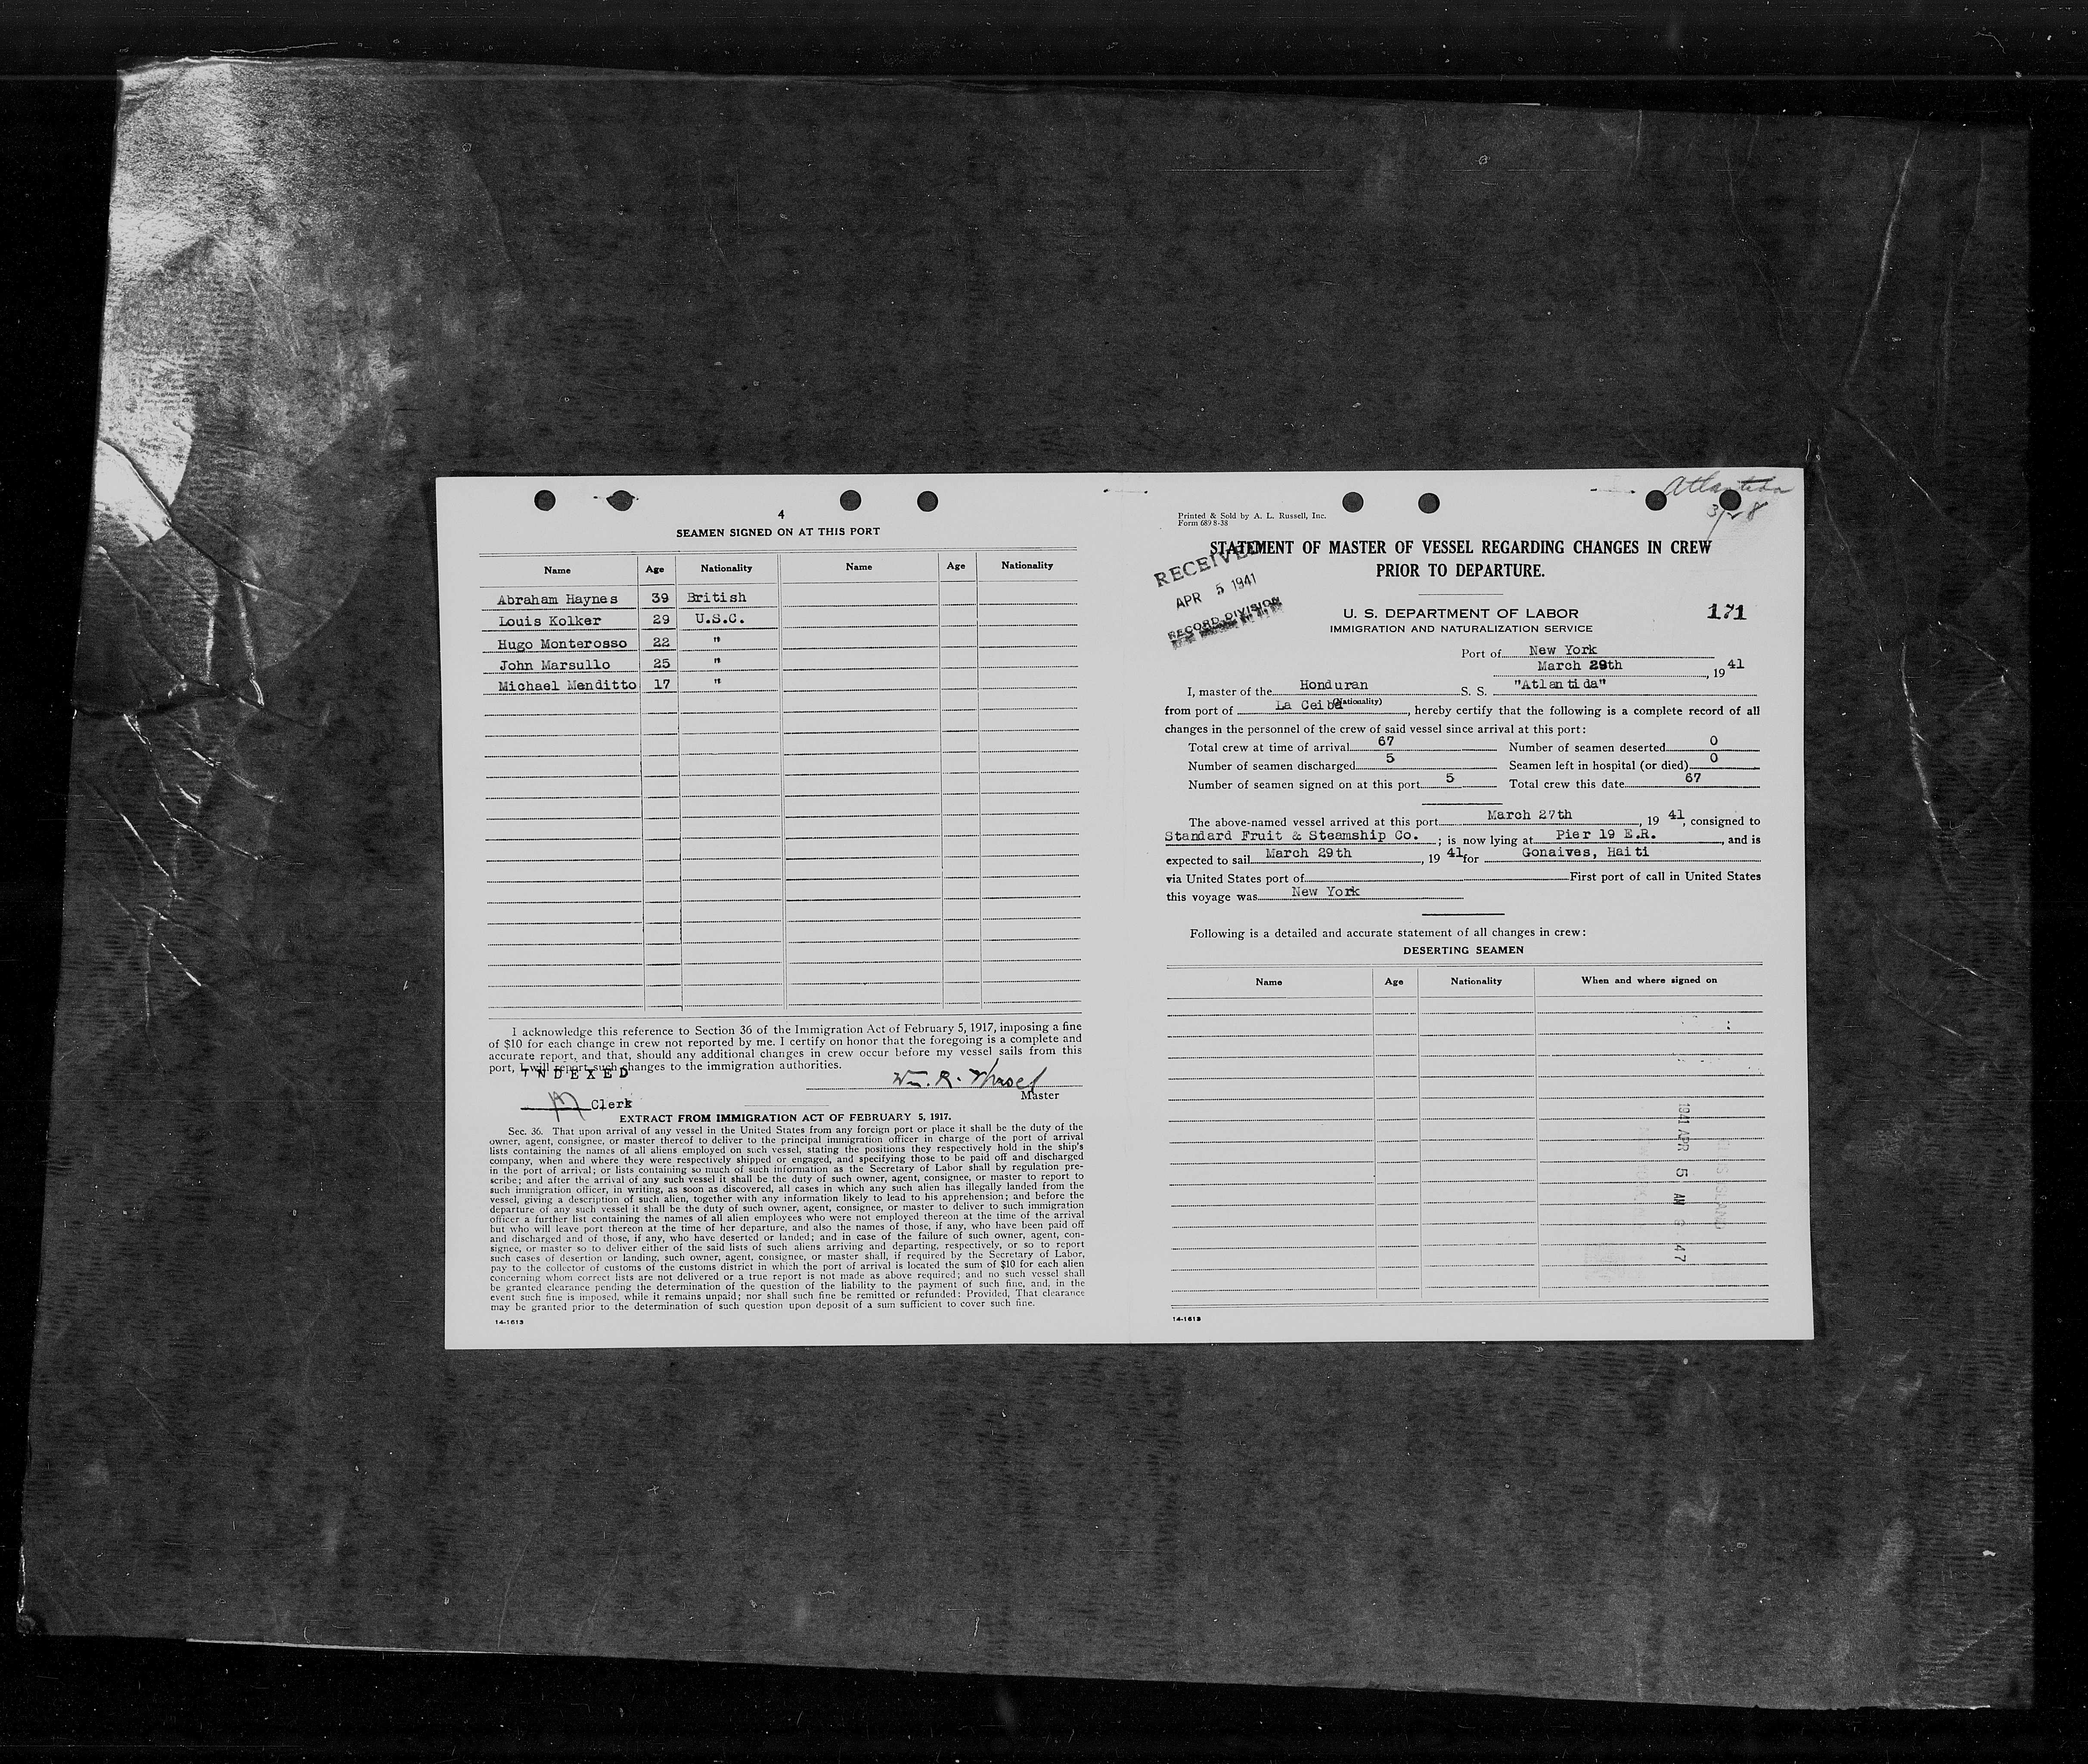 4
SEAMEN SIGNED ON AT THIS PORT
Name Age Nationality Name Age Nationality
Abraham Haynes 39 British
Louis Kolker 29 U.S.C.
Hugo Monterosso 22 "
John Marsullo 25 "
Michael Menditto 17 "
I acknowledge this reference to Section 36 of the Immigration Act of February 5, 1917, imposing a fine
of $10 for each change in crew not reported by me. I certify on honor that the foregoing is a complete and
accurate report, and that, should any additional changes in crew occur before my vessel sails from this
port, I will report such changes to the immigration authorities.
INDEXED
Wm. R.
Master
Clerk
EXTRACT FROM IMMIGRATION ACT OF FEBRUARY 5, 1917.
Sec. 36. That upon arrival of any vessel in the United States from any foreign port or place it shall be the duty of the
owner, agent, consignee, or master thereof to deliver to the principal immigration officer in charge of the port of arrival
lists containing the names of all aliens employed on such vessel, stating the positions they respectively hold in the ship's
company, when and where they were respectively shipped or engaged, and specifying those to be paid off and discharged
in the port of arrival; or lists containing so much of such information as the Secretary of Labor shall by regulation pre-
scribe; and after the arrival of any such vessel it shall be the duty of such owner, agent, consignee, or master to report to
such immigration officer, in writing, as soon as discovered, all cases in which any such alien has illegally landed from the
vessel, giving a description of such alien, together with any information likely to lead to his apprehension; and before the
departure of any such vessel it shall be the duty of such owner, agent, consignee, or master to deliver to such immigration
officer a further list containing the names of all alien employees who were not employed thereon at the time of the arrival
but who will leave port thereon at the time of her departure, and also the names of those, if any, who have been paid off
and discharged and of those, if any, who have deserted or landed; and in case of the failure of such owner, agent, con-
signee, or master so to deliver either of the said lists of such aliens arriving and departing, respectively, or so to report
such cases of desertion or landing, such owner, agent, consignee, or master shall, if required by the Secretary of Labor,
pay to the collector of customs of the customs district in which the port of arrival is located the sum of $10 for each alien
concerning whom correct lists are not delivered or a true report is not made as above required; and no such vessel shall
be granted clearance pending the determination of the question of the liability to the payment of such fine, and, in the
event such fine is imposed, while it remains unpaid; nor shall such fine be remitted or refunded: Provided, That clearance
may be granted prior to the determination of such question upon deposit of a sum sufficient to cover such fine.
14-1613
Atlantida
3/28
Printed & Sold by A. L. Russell, Inc.
Form 689 8-38
STATEMENT OF MASTER OF VESSEL REGARDING CHANGES IN CREW
PRIOR TO DEPARTURE.
RECEIVED
APR 5 1941
RECORD DIVISION
U. S. DEPARTMENT OF LABOR
171
IMMIGRATION AND NATURALIZATION SERVICE
Port of New York
March 29th, 19 41
I, master of the Honduran S. S. "Atlantida"
(Nationality)
from port of La Ceiba, hereby certify that the following is a complete record of all
changes in the personnel of the crew of said vessel since arrival at this port:
Total crew at time of arrival 67 Number of seamen deserted 0
Number of seamen discharged 5 Seamen left in hospital (or died) 0
Number of seamen signed on at this port 5 Total crew this date 67
The above-named vessel arrived at this port March 27th, 19 41, consigned to
Standard Fruit & Steamship Co. ; is now lying at Pier 19 E.R., and is
expected to sail March 29th, 19 41 for Gonaives, Haiti
via United States port of First port of call in United States
this voyage was New York
Following is a detailed and accurate statement of all changes in crew:
DESERTING SEAMEN
Name Age Nationality When and where signed on
1941 APR 5 AM 47
14-1613